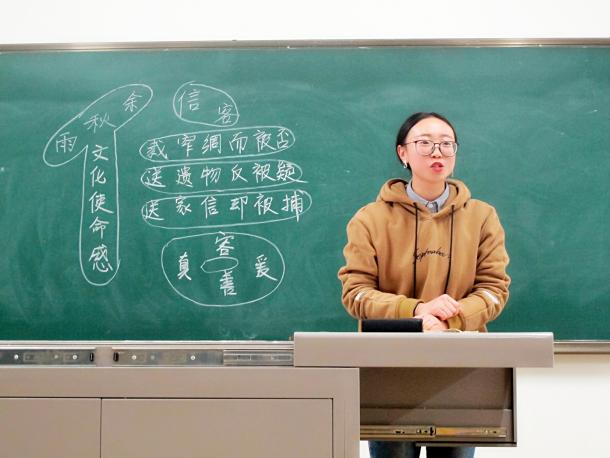 余秋雨
文化使命感
信客
裁窄绸而被否
送遗物反被疑
送家信却被捕
容
真 爱
善